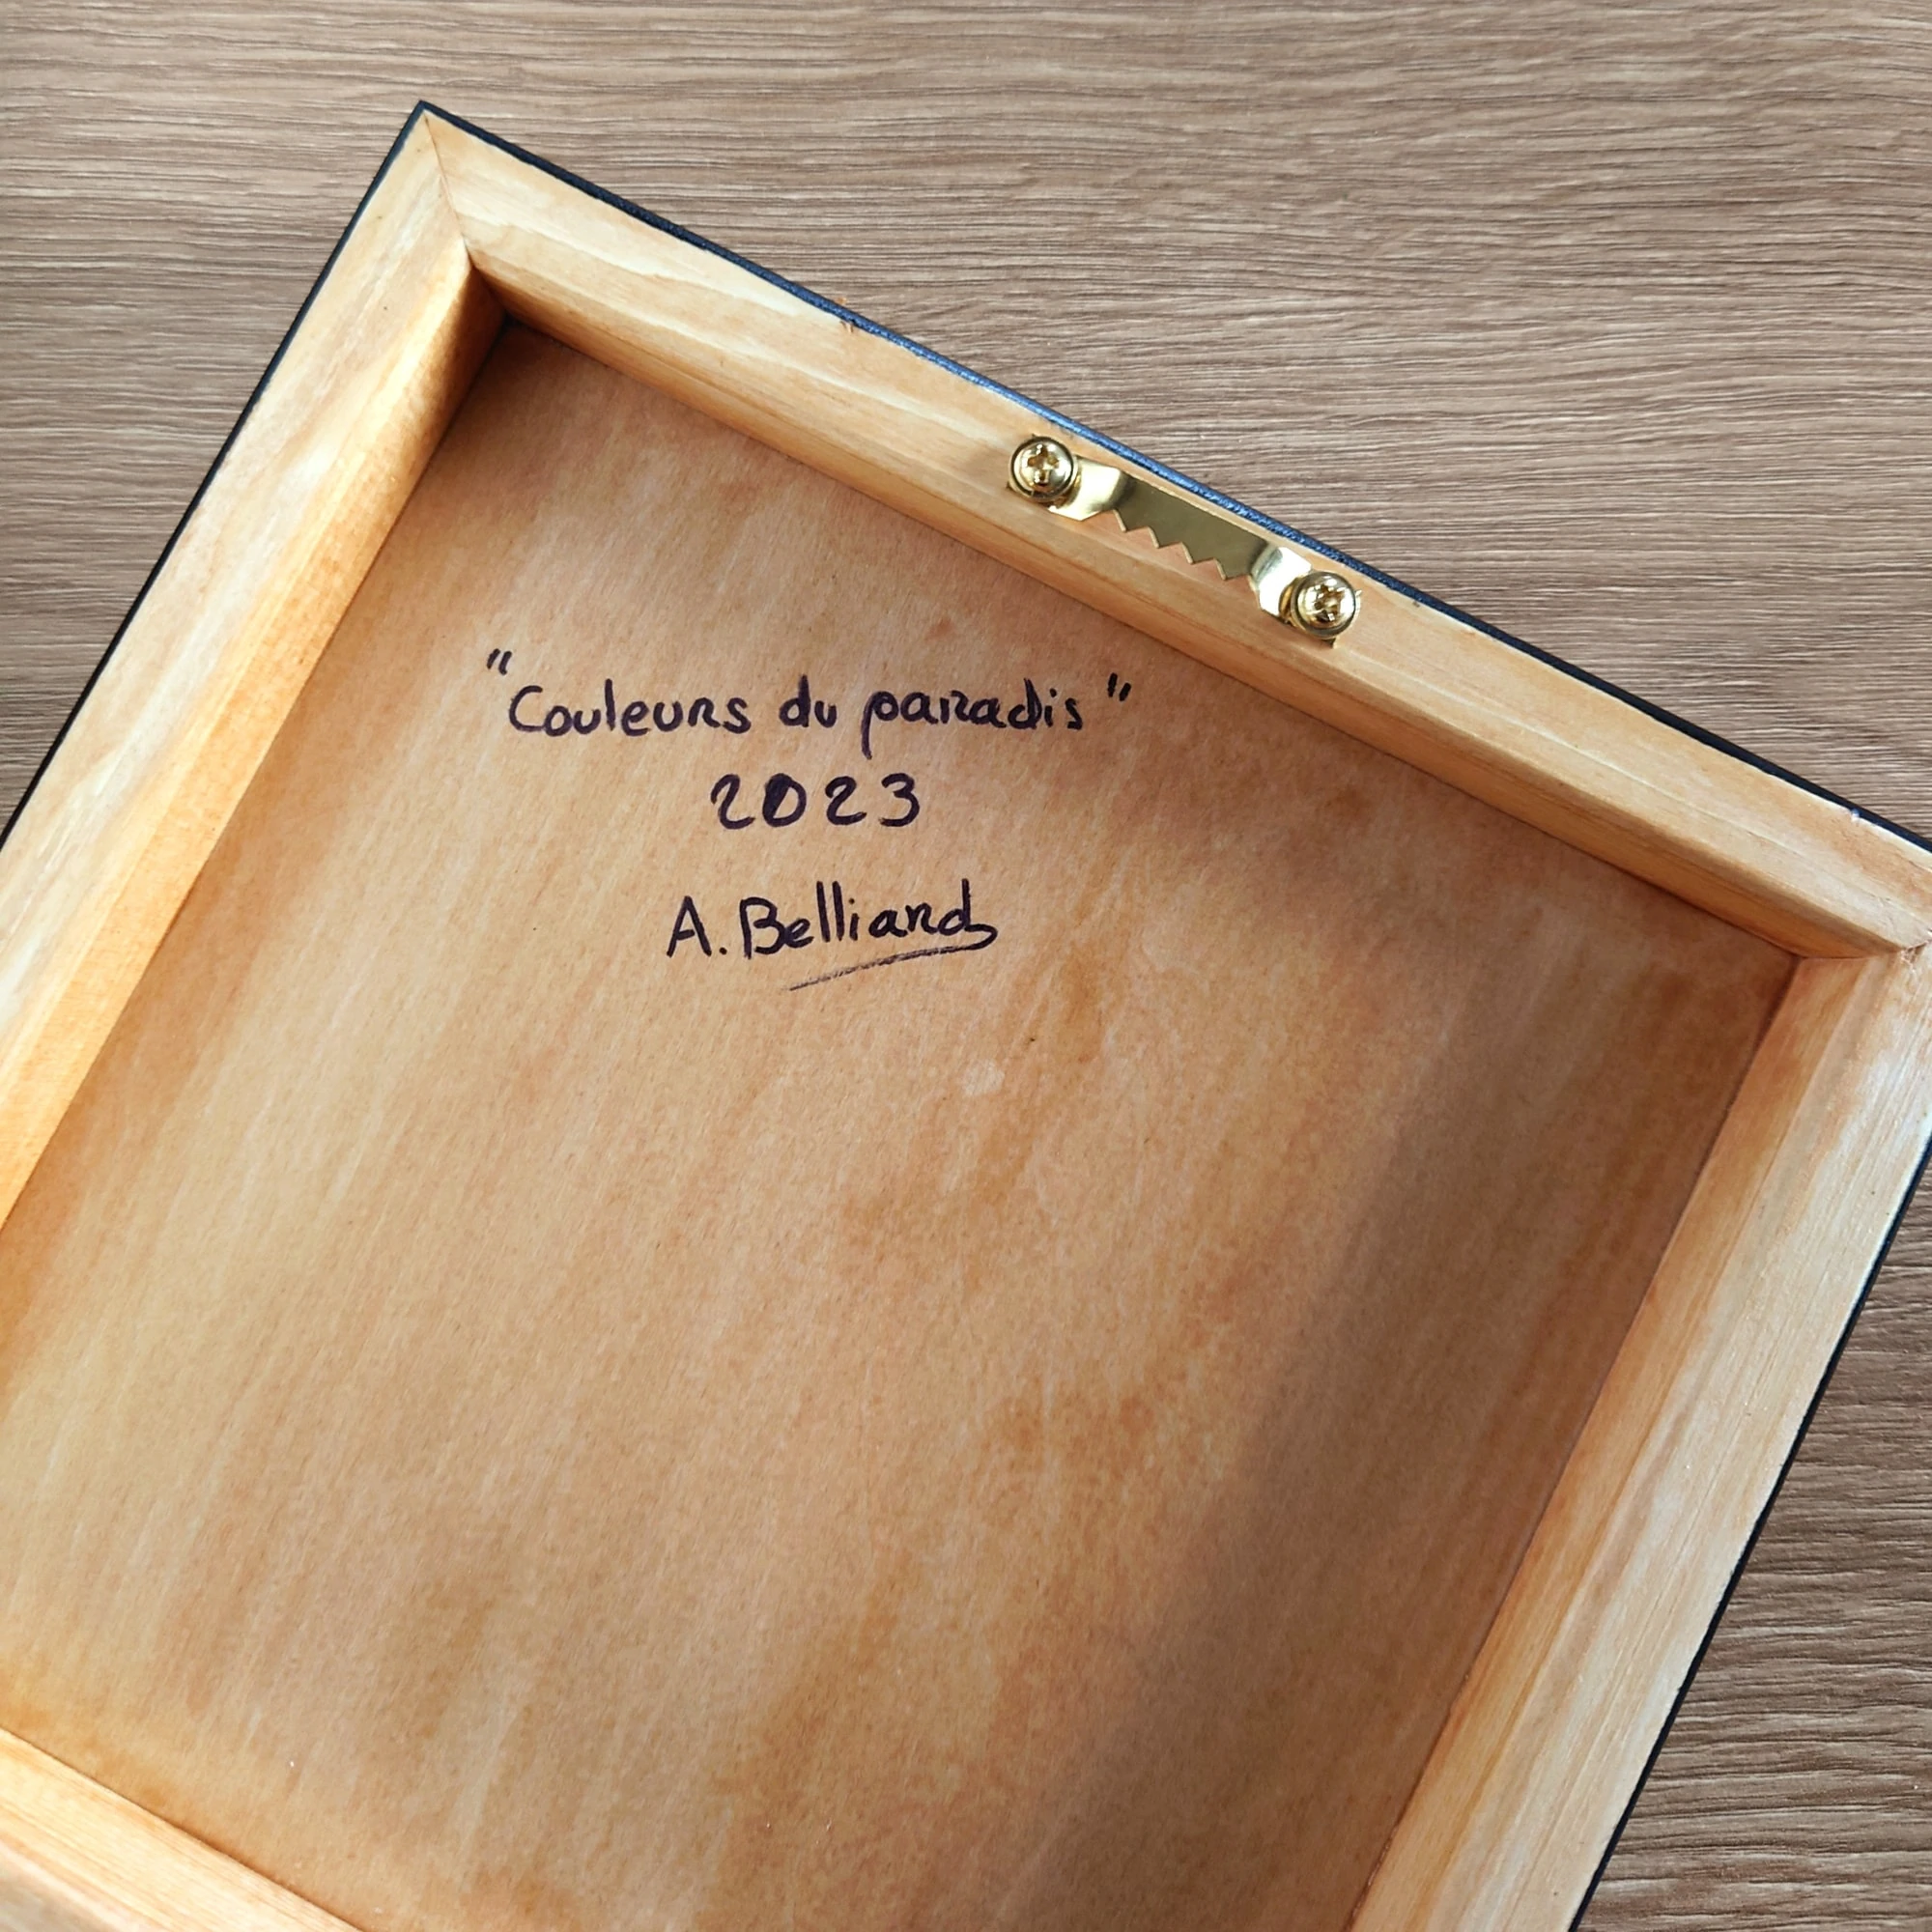 "Couleurs du paradis"
2023
A. Belliard